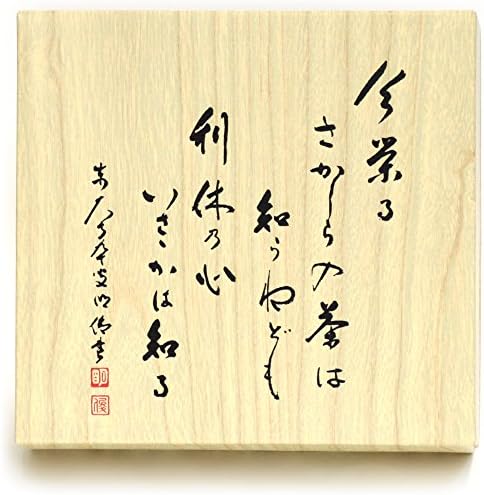 今栄る
さかしらの茶は
知らねども
利休の心
いさかは知る